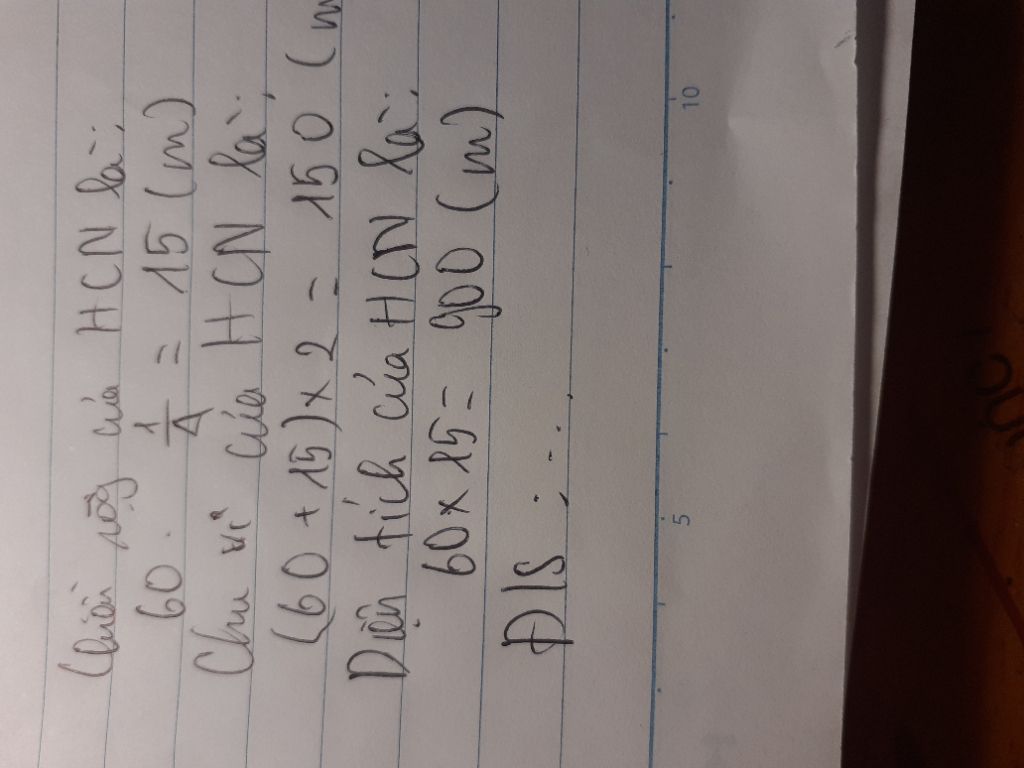 Chiều rộng của HCN là:
60 . 1/4 = 15 (m)
Chu vi của HCN là:
(60 + 15) x 2 = 150 (m
Diện tích của HCN là:
60 x 15 = 900 (m)
Đ/S : ...
5
10